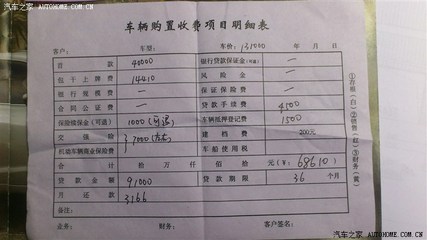 汽车之家
AUTOHOME.COM.CN
车辆购置收费项目明细表
客户： 车型： 车价：131000 年 月 日
首 款 40000 银行贷款保证金(可退) 一
包干上牌费 14410 风 险 金 一
银行按揭费 一 保证保险费 一
合同公证费 一 贷款手续费 4500
保险续保金(可退) 1000(可退) 车辆抵押登记费 1500
交 强 险 7000 建 档 费 200元
机动车辆商业保险费 车船使用税
合 计 拾 万 仟 佰 拾 元(¥: 68610 )
贷款金额 91000 贷款期限 36 个月
月 还 款 3166
备注：
业务： 财务： 客户签名：
①存根(白) ②销售(红) ③财务(黄)
汽车之家 AUTOHOME.COM.CN